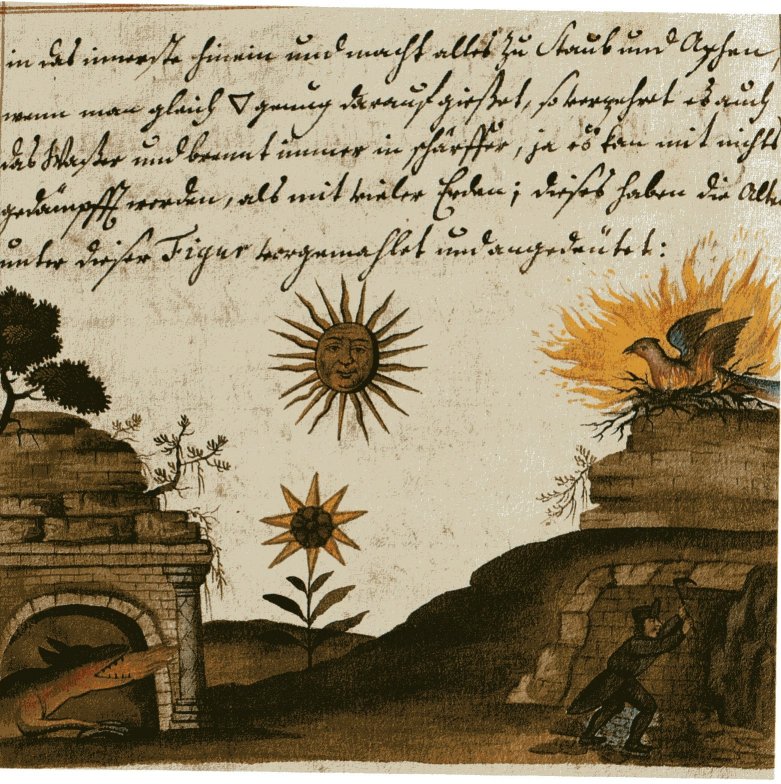 in das innerste hinein und macht alles zu Staub und Aschen,
wenn man gleich 🜄 genung darauf gießet, so verzehret es auch
das Waßer und brennt immer in schärffer, ja es kan mit nichts
gedämpfft werden, als mit vieler Erden; dieses haben die Alte
unter dieser Figur vorgemahlet und angedeütet: